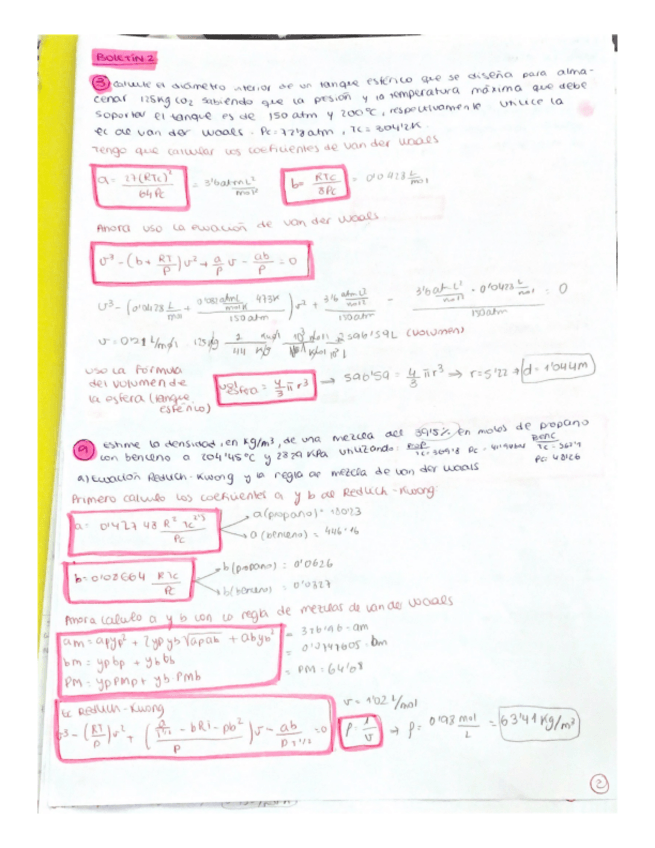 BOLETÍN 2
③ Calcule el diámetro interior de un tanque esférico que se diseña para alma-
cenar 125Kg CO2 sabiendo que la presión y la temperatura máxima que debe
soportar el tanque es de 150 atm y 200ºC, respectivamente. Utilice la
ec de van der waals. Pc=72'8 atm, Tc=304'2K.
Tengo que calcular los coeficientes de van der waals
a = 27(RTc)² / 64Pc = 3'6 atm L² / mol² b = RTc / 8Pc = 0'0428 L / mol
Ahora uso la ecuación de van der waals
v³ - (b + RT/P) v² + a/P v - ab/P = 0
v³ - (0'0428 L/mol + 0'082 atmL/molK 473K / 150 atm) v² + 3'6 atm L²/mol² / 150 atm - 3'6 atm L²/mol² · 0'0428 L/mol / 150 atm = 0
v = 0'21 L/mol 596'59L (volumen)
uso la fórmula
del volumen de
la esfera (tanque
esférico)
vol esfera = 4/3 π r³ → 596'59 = 4/3 π r³ → r = 5'22 → d = 1'044m
⑨ estime la densidad, en Kg/m³, de una mezcla del 39'5% en moles de propano
con benceno a 204'45ºC y 2829 KPa utilizando:
a) Ecuación Redlich-Kwong y la regla de mezcla de van der waals
Primero calculo los coeficientes a y b de Redlich-Kwong:
a = 0'42748 R² Tc^2'5 / Pc
a (propano) = 180'23
a (benceno) = 446'16
b = 0'08664 RTc / Pc
b (propano) = 0'0626
b (benceno) = 0'0827
Ahora calculo a y b con la regla de mezclas de van der waals
am = apyp² + 2ypyb√apab + abyb² = 326'46 · am
bm = ypbp + ybbb = 0'0747605 · bm
PM = ypPMp + yb PMb = PM = 64'08
Ec Redlich-Kwong
v³ - (RT/P) v² + (a/T^1/2 - bRT - Pb² / P) v - ab / P T^1/2 = 0
v = 1'02 L/mol
ρ = 1/v → ρ = 0'98 mol/L = 63'41 Kg/m³
②